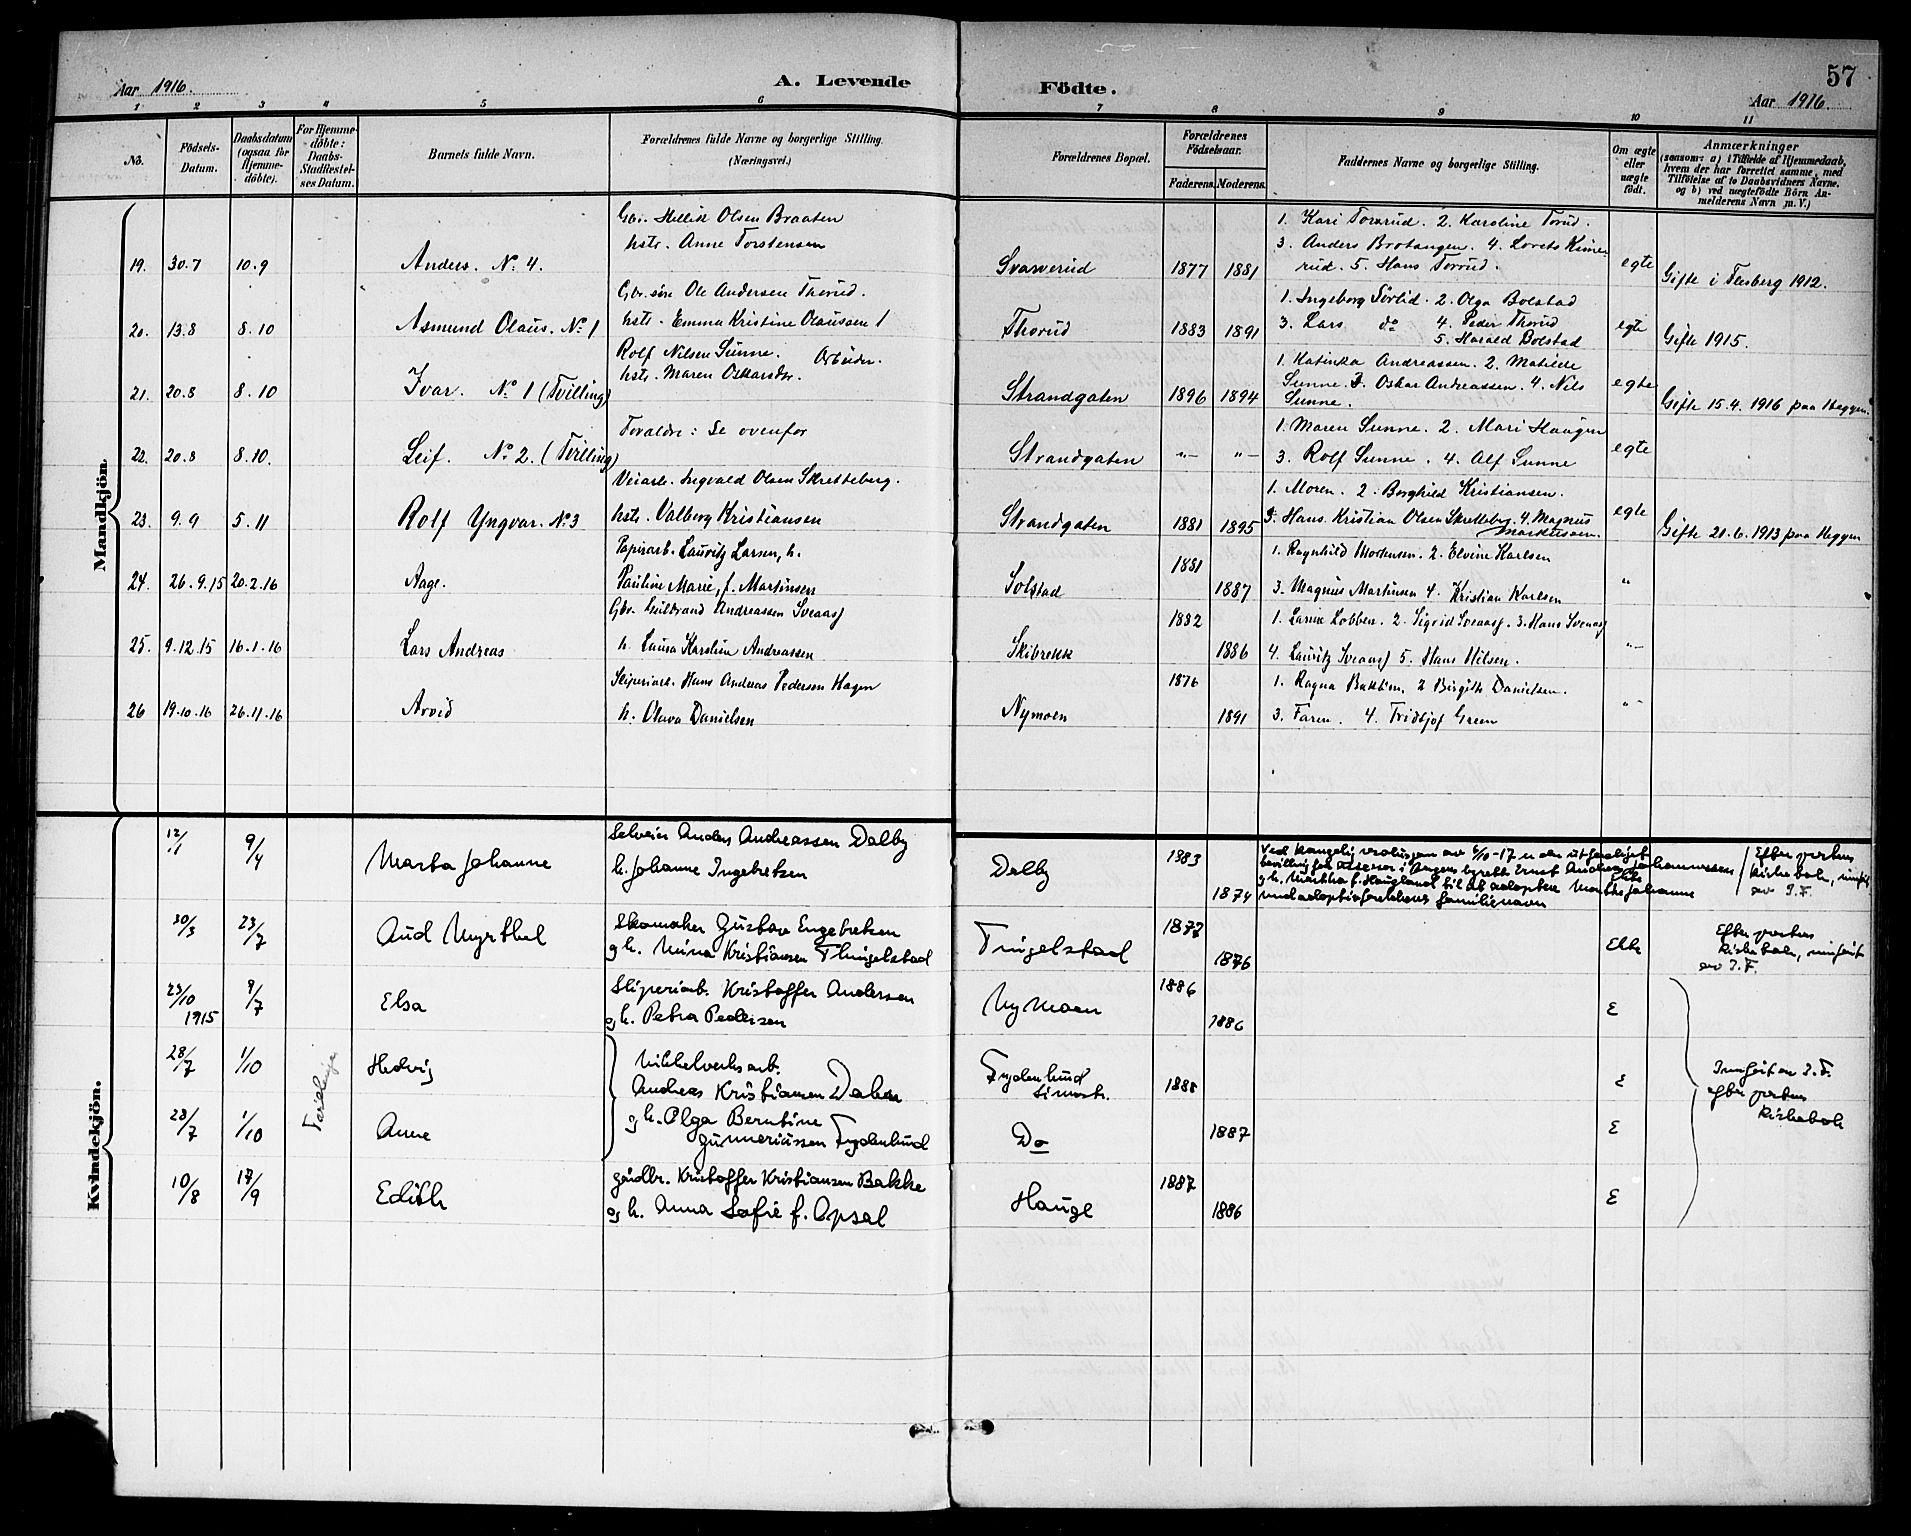 Aar 1916.
A. Levende
Födte.
57
Aar 1916.
1 2 3 4 5 6 7 8 9 10 11
No.
Födsels-
Datum.
Daabsdatum
(ogsaa for
Hjemme-
döbte).
For Hjemme-
döbte:
Daabs-
Stadfæstel-
ses Datum.
Barnets fulde Navn.
Forældrenes fulde Navne og borgerlige Stilling.
(Næringsvei.)
Forældrenes Bopæl.
Forældrenes
Födselsaar.
Faderens. Moderens.
Faddernes Navne og borgerlige Stilling.
Om ægte
eller
uægte
födt.
Anmærkninger
(saasom: a) i Tilfælde af Hjemmedaab,
hvem der har forrettet samme, med
Tilföielse af to Daabsvidners Navne.
og b) ved uægtefödte Börn An-
melderens Navn m. V.)
Mandkjön.
Gbr. Hellik Olsen Braaten
hstr. Anne Torstensen
19. 30.7 10.9 Anders. No 4. 1877 1881 egte Gifte i Flesberg 1912.
1. Kari Torsrud. 2. Karoline Torud.
3. Anders Brotangen. 4.
rud. 5. Hans Torrud.
Gbr.søn Ole Andersen Thorud.
hstr. Emma Kristine Olaussen 1
20. 13.8 8.10 Asmund Olaus. No 1 Thorud 1883 1891 egte Gifte 1915.
1. Ingeborg Sørlid. 2. Olga Bolstad
3. Lars do 4. Peder Thorud
5. Harald Bolstad
Rolf Nilsen Sunne. Arbeider.
hstr. Maren Oskarsdr.
21. 20.8 8.10 Ivar. No 1 (Tvilling) Strandgaten 1896 1894 egte Gifte 15.4. 1916 paa Heggen.
1. Katinka Andreassen. 2. Matilde
Sunne. 3. Oskar Andreassen. 4. Nils
Sunne.
Foraldre: Se ovenfor
22. 20.8 8.10. Leif. No 2. (Tvilling) Strandgaten "- "- egte
1. Maren Sunne. 2. Mari Haugen
3. Rolf Sunne. 4. Alf Sunne
Veiarb. Ingvald Olsen Skretteberg.
hstr. Valborg Kristiansen
23. 9.9 5.11 Rolf Yngvar. No 3 Strandgaten 1881 1895 egte Gifte 21.6.1913 paa Heggen
1. Moren. 2. Borghild Kristiansen.
3. Hans Kristian Olsen Skretteberg. 4. Magnus
Markussen.
Papirarb. Lauritz Larsen, h.
Pauline Marie, f. Martinsen
24. 26.9.15 20.2.16 Aage. Solstad 1881 1887 "
1. Ragnhild Mortensen. 2. Elvine Karlsen
3. Magnus Martinsen 4. Kristian Karlsen
Gbr. Guldbrand Andreassen Sveaas
h. Laura Karoline Andreassen
25. 9.12.15 16.1.16 Lars Andreas Skibrekk 1882 1886 "-
1. Larine Lobben. 2. Sigrid Sveaas. 3. Hans Sveaas
4. Lauritz Sveaas 5. Hans Nilsen.
Sliperiarb. Hans Andreas Pedersen Hagen
h. Olava Danielsen
26 19.10.16 26.11.16 Arvid Nymoen 1876 1891 "-
1. Ragna Bakken. 2 Birgitte Danielsen.
3. Faren. 4. Fridtjof Green
Kvindekjön.
12/1 9/4 Marta Johanne
Selveier Anders Andreassen Dalby
h. Johanne Ingebretsen
Dalby 1883 1874
Ved kongelig resolusjon av 5/10-17 er der utferdiget
bevilling for assessor i Bergens byrett Ernst Andreas Johannessen
g h. Martha f. Haugland til at adoptere Marthe Johanne
med adoptivforeldrenes familienavn
Ekte
Efter prestens
kirkebok, innført
av I.F.
30/3 23/7 Aud Myrthel
Skomaker Gustav Engebretsen
g h. Mina Kristiansen Thingelstad
Tingelstad 1877 1876 Ekte
Efter prestens
kirkebok, innført
av I.F.
23/10 1915 9/7 Elsa
Sliperiarb. Kristoffer Andersen
og h. Petra Pedersen
Nymoen 1886 1886 E
28/7 1/10 Hedvig
Nikkelverksarb.
Andreas Kristiansen Dahlen
Frydenlund
1888 E
Innført av I.F.
efter prestens
kirkebok
28/7 1/10 Anne
g h. Olga Berntine
Gunneriussen Frydenlund
Do 1887 E
10/8 17/9 Edith
gårdbr. Kristoffer Kristiansen Bakke
og h. Anna Sofie f. Opsal
Hauge 1887 1886 E